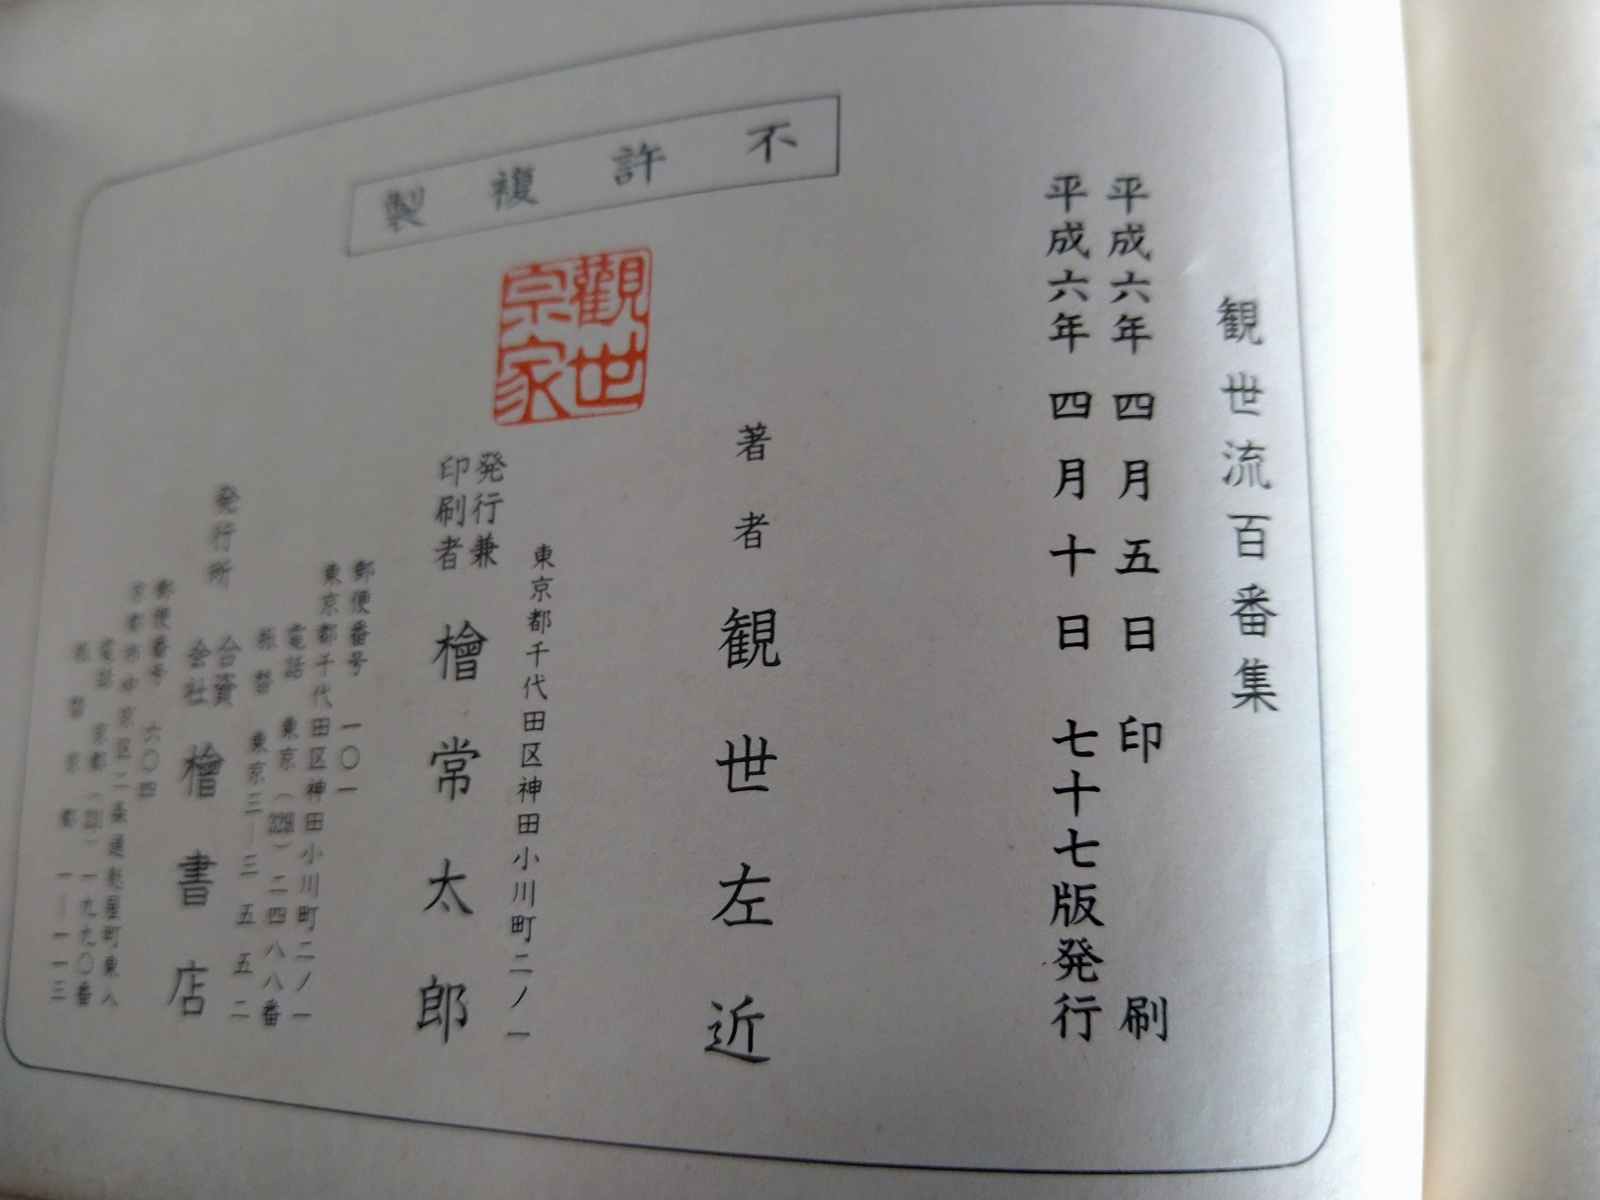 観世流百番集
平成六年四月五日印刷
平成六年四月十日七十七版発行
不許複製
著者 観世左近
觀世宗家
東京都千代田区神田小川町二ノ一
発行兼印刷者 檜常太郎
郵便番号 一〇一
東京都千代田区神田小川町二ノ一
電話 東京(329)二四八八番
振替 東京三―三五五二
発行所 合資会社 檜書店
郵便番号 六〇四
京都市中京区二条通麩屋町東入
電話 京都(231)一九九〇番
振替京都 一―一一三